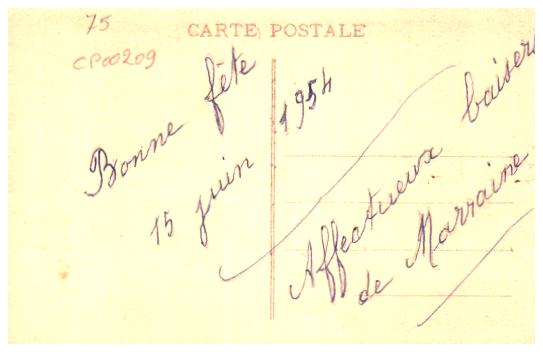 75
CARTE POSTALE
CP00209
Bonne fête
15 juin 1954
Affectueux baisers
de Marraine